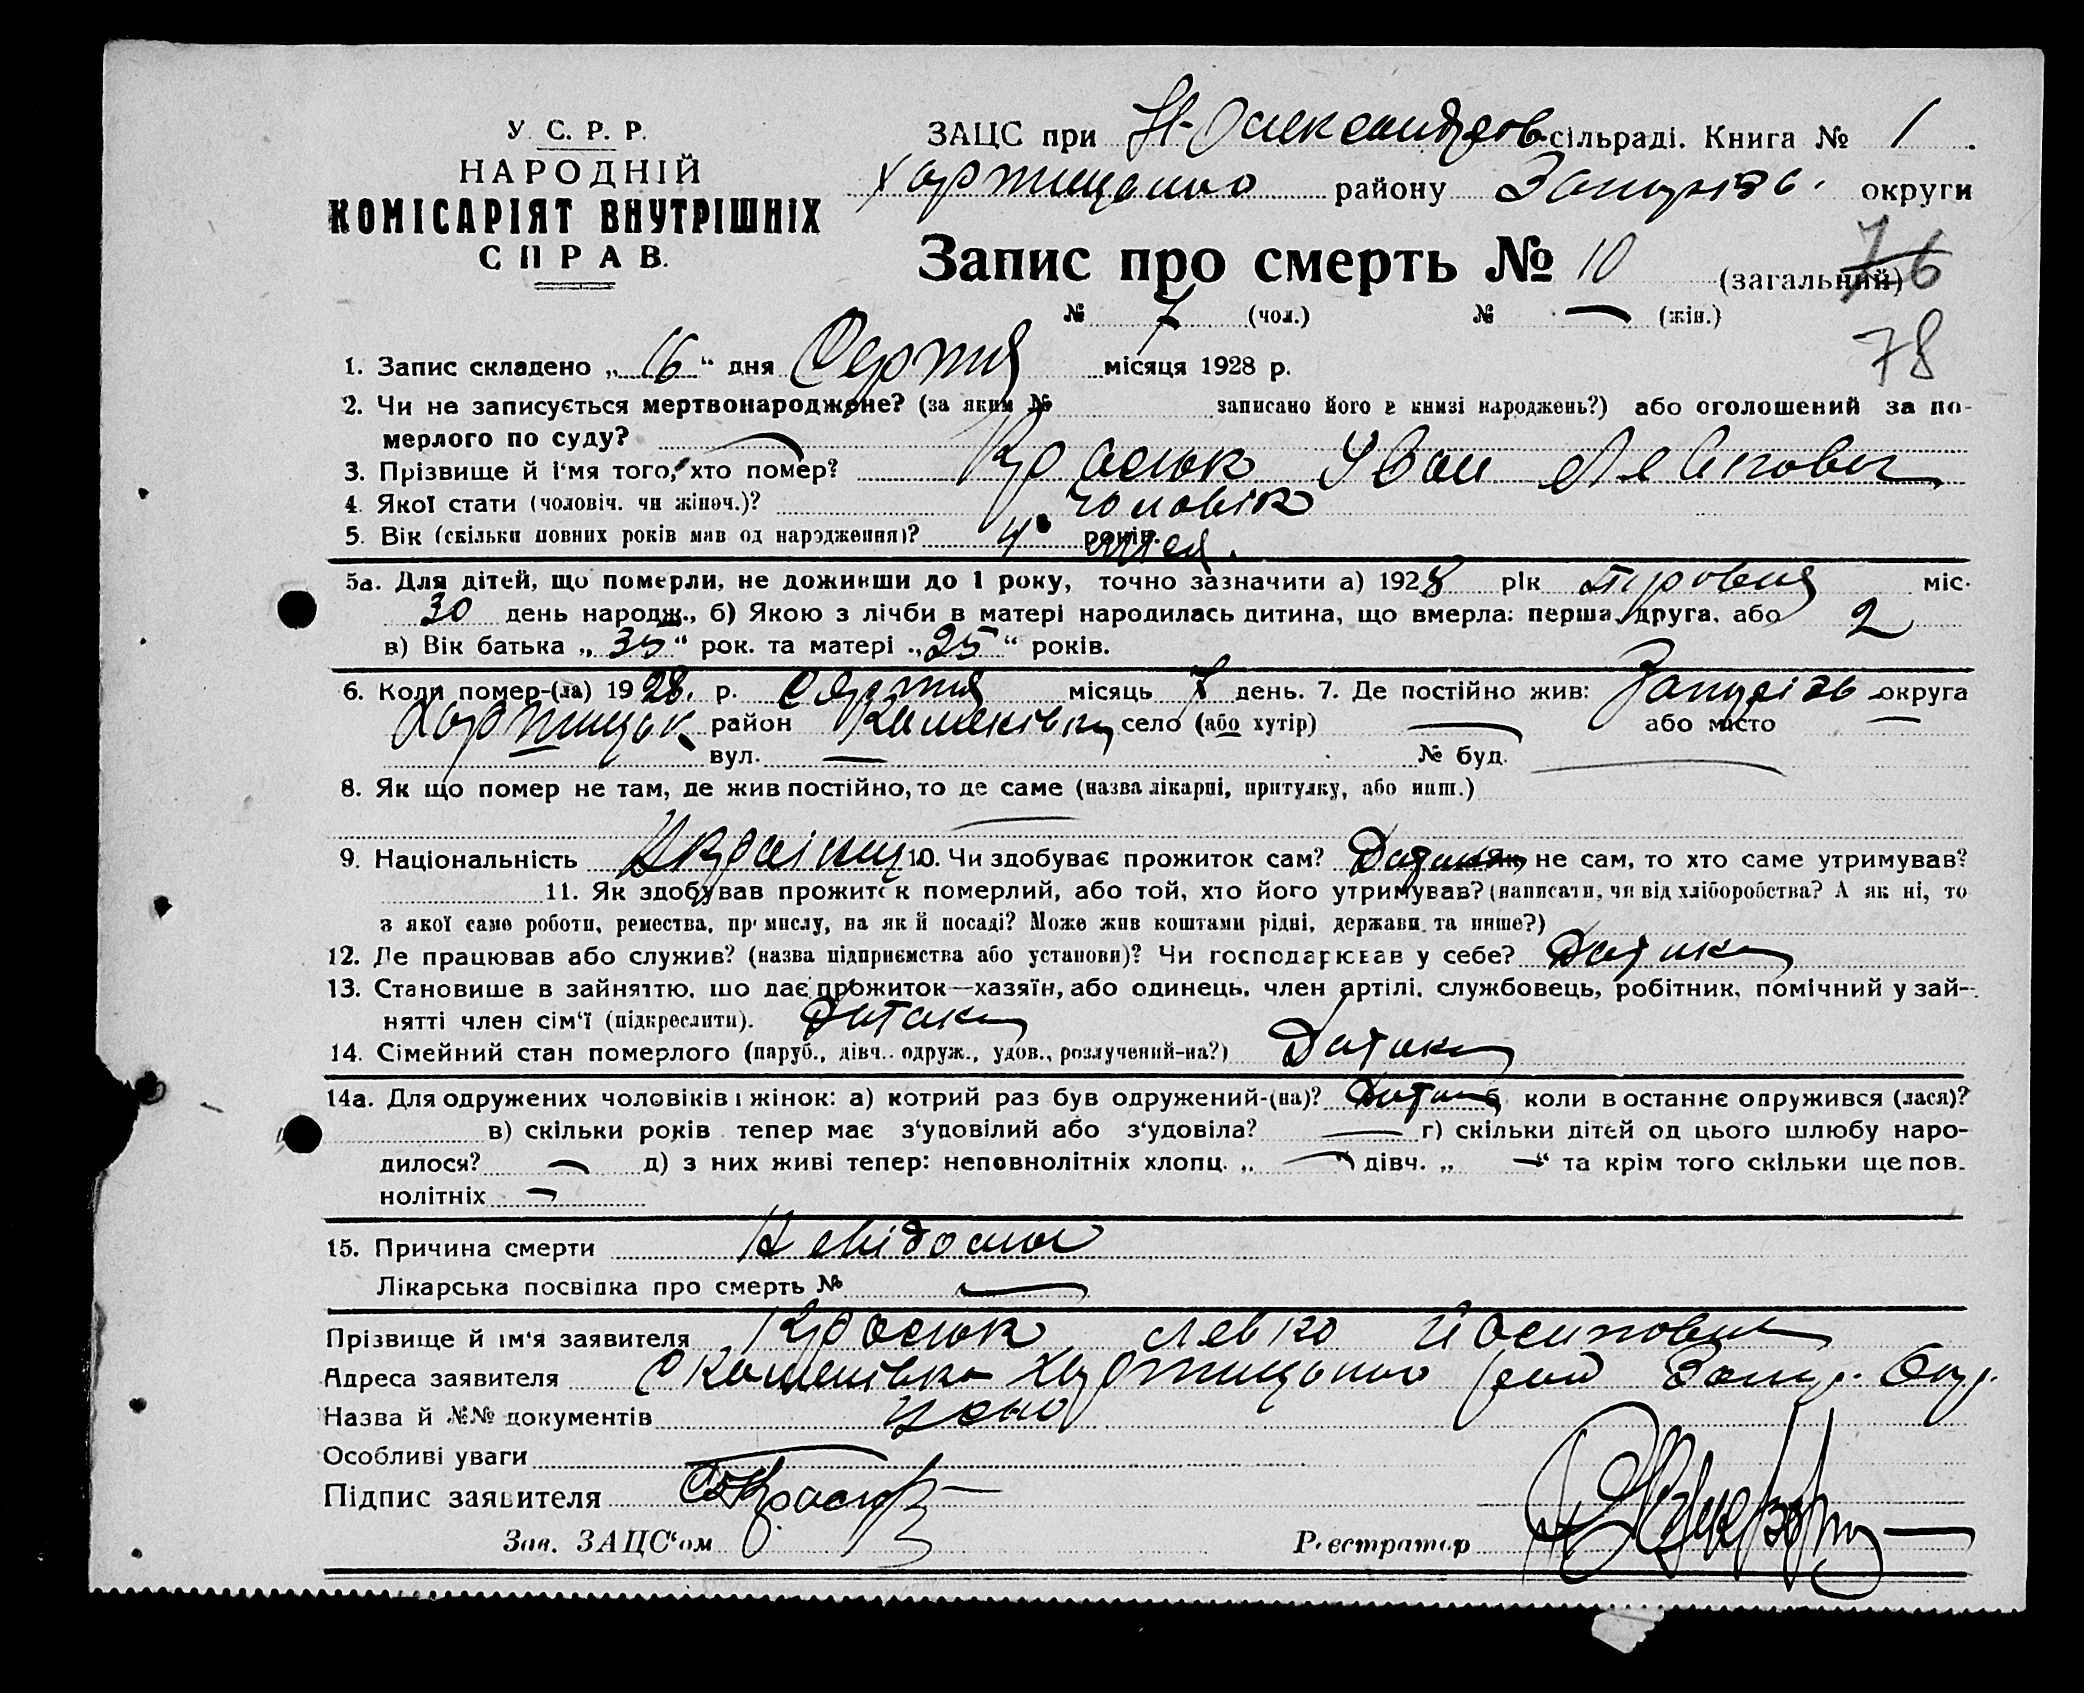 У. С. Р. Р.
НАРОДНІЙ
КОМІСАРІЯТ ВНУТРІШНІХ
СПРАВ.
ЗАЦС при Н-Олександров сільраді. Книга № 1.
Хортицького району Запоріз. округи
Запис про смерть № 10 (загальний) 76
№ 7 (чол.) № — (жін.)
78
1. Запис складено „16“ дня Серпня місяця 1928 р.
2. Чи не записується мертвонароджене? (за яким № записано його в книзі народжень?) або оголошений за по-
мерлого по суду? —
3. Прізвище й ім'я того, хто помер? Красюк Іван Левкович
4. Якої стати (чоловіч. чи жіноч.)? чоловік
5. Вік (скільки повних років мав од народження)? 4 років.
5а. Для дітей, що померли, не доживши до 1 року, точно зазначити а) 1928 рік міс.
30 день народж., б) Якою з лічби в матері народилась дитина, що вмерла: перша, друга, або 2
в) Вік батька „35“ рок. та матері „25“ років.
6. Коли помер-(ла) 1928. р. серпня місяць 7 день. 7. Де постійно жив: Запоріз округа
Хортицьк район село (або хутір) — або місто —
вул. — № буд. —
8. Як що помер не там, де жив постійно, то де саме (назва лікарні, притулку, або инш.)
—
9. Національність Українец 10. Чи здобуває прожиток сам? Дитина як не сам, то хто саме утримував?
11. Як здобував прожиток померлий, або той, хто його утримував? (написати, чи від хліборобства? А як ні, то
з якої саме роботи, ремества, промислу, на якій посаді? Може жив коштами рідні, держави та инше?)
12. Де працював або служив? (назва підприємства або установи)? Чи господарював у себе? Дитина
13. Становище в зайняттю, що дає прожиток—хазяїн, або одинець, член артілі, службовець, робітник, помічний у зай-
нятті член сім'ї (підкреслити). Дитина
14. Сімейний стан померлого (паруб., дівч., одруж., удов., розлучений-на?) Дитина
14а. Для одружених чоловіків і жінок: а) котрий раз був одружений-(на)? Дитина б коли в останнє одружився (лася)?
в) скільки років тепер має з'удовілий або з'удовіла? — г) скільки дітей од цього шлюбу наро-
дилося? — д) з них живі тепер: неповнолітніх хлопц. „ — “ дівч. „ — “ та крім того скільки ще пов-
нолітніх —
15. Причина смерти Невідома
Лікарська посвідка про смерть № —
Прізвище й ім'я заявителя Красюк Левко Йосипович
Адреса заявителя Хортицького рай Запор. Окр.
Назва й №№ документів
Особливі уваги —
Підпис заявителя Красюк
Зав. ЗАЦС'ом Реєстратор